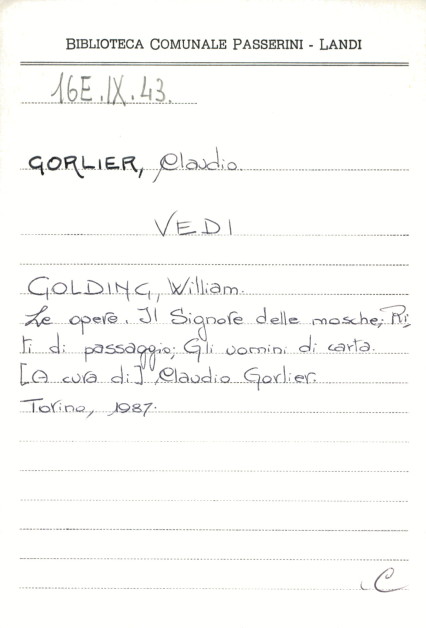 BIBLIOTECA COMUNALE PASSERINI - LANDI
16E.IX.43.
GORLIER, Claudio.
VEDI
GOLDING, William.
Le opere. Il Signore delle mosche; Ri,
ti di passaggio; Gli uomini di carta.
[A cura di] Claudio Gorlier.
Torino, 1987.
C